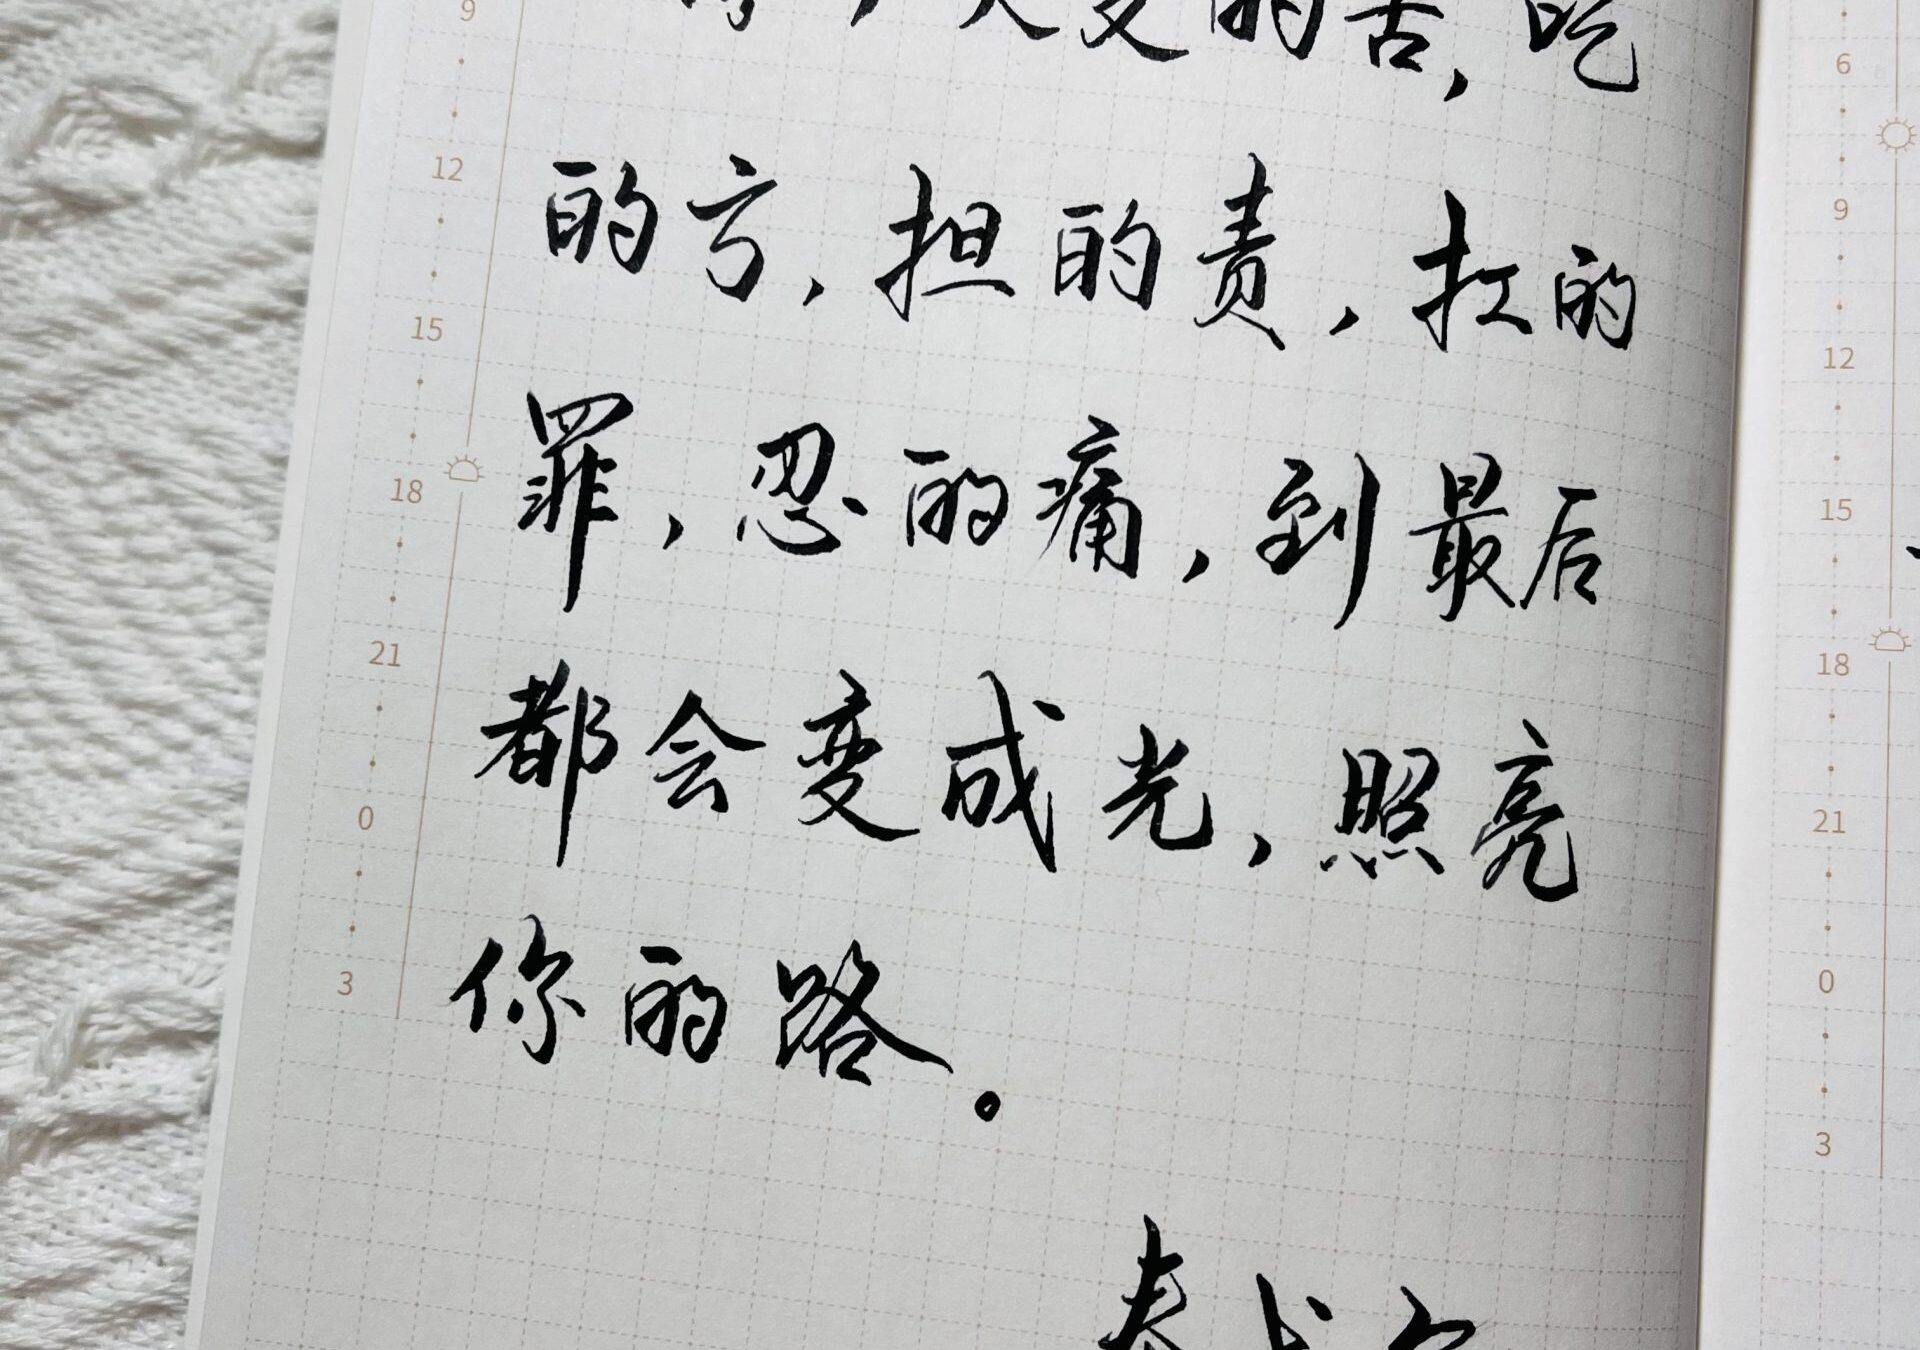 受的苦，吃
的亏，担的责，扛的
罪，忍的痛，到最后
都会变成光，照亮
你的路。
9
12
15
18
21
0
3
6
9
12
15
18
21
0
3